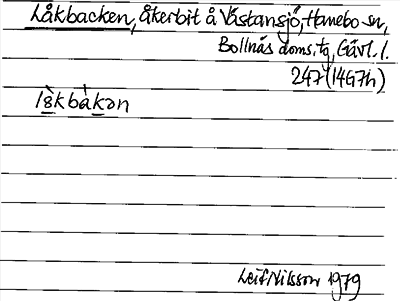 Låkbacken, åkerbit å Västansjö, Hanebo sn,
Bollnäs doms.tg, Gävl. l.
247 (14G7h)
lɛ̀kbàkən
Leif Nilsson 1979